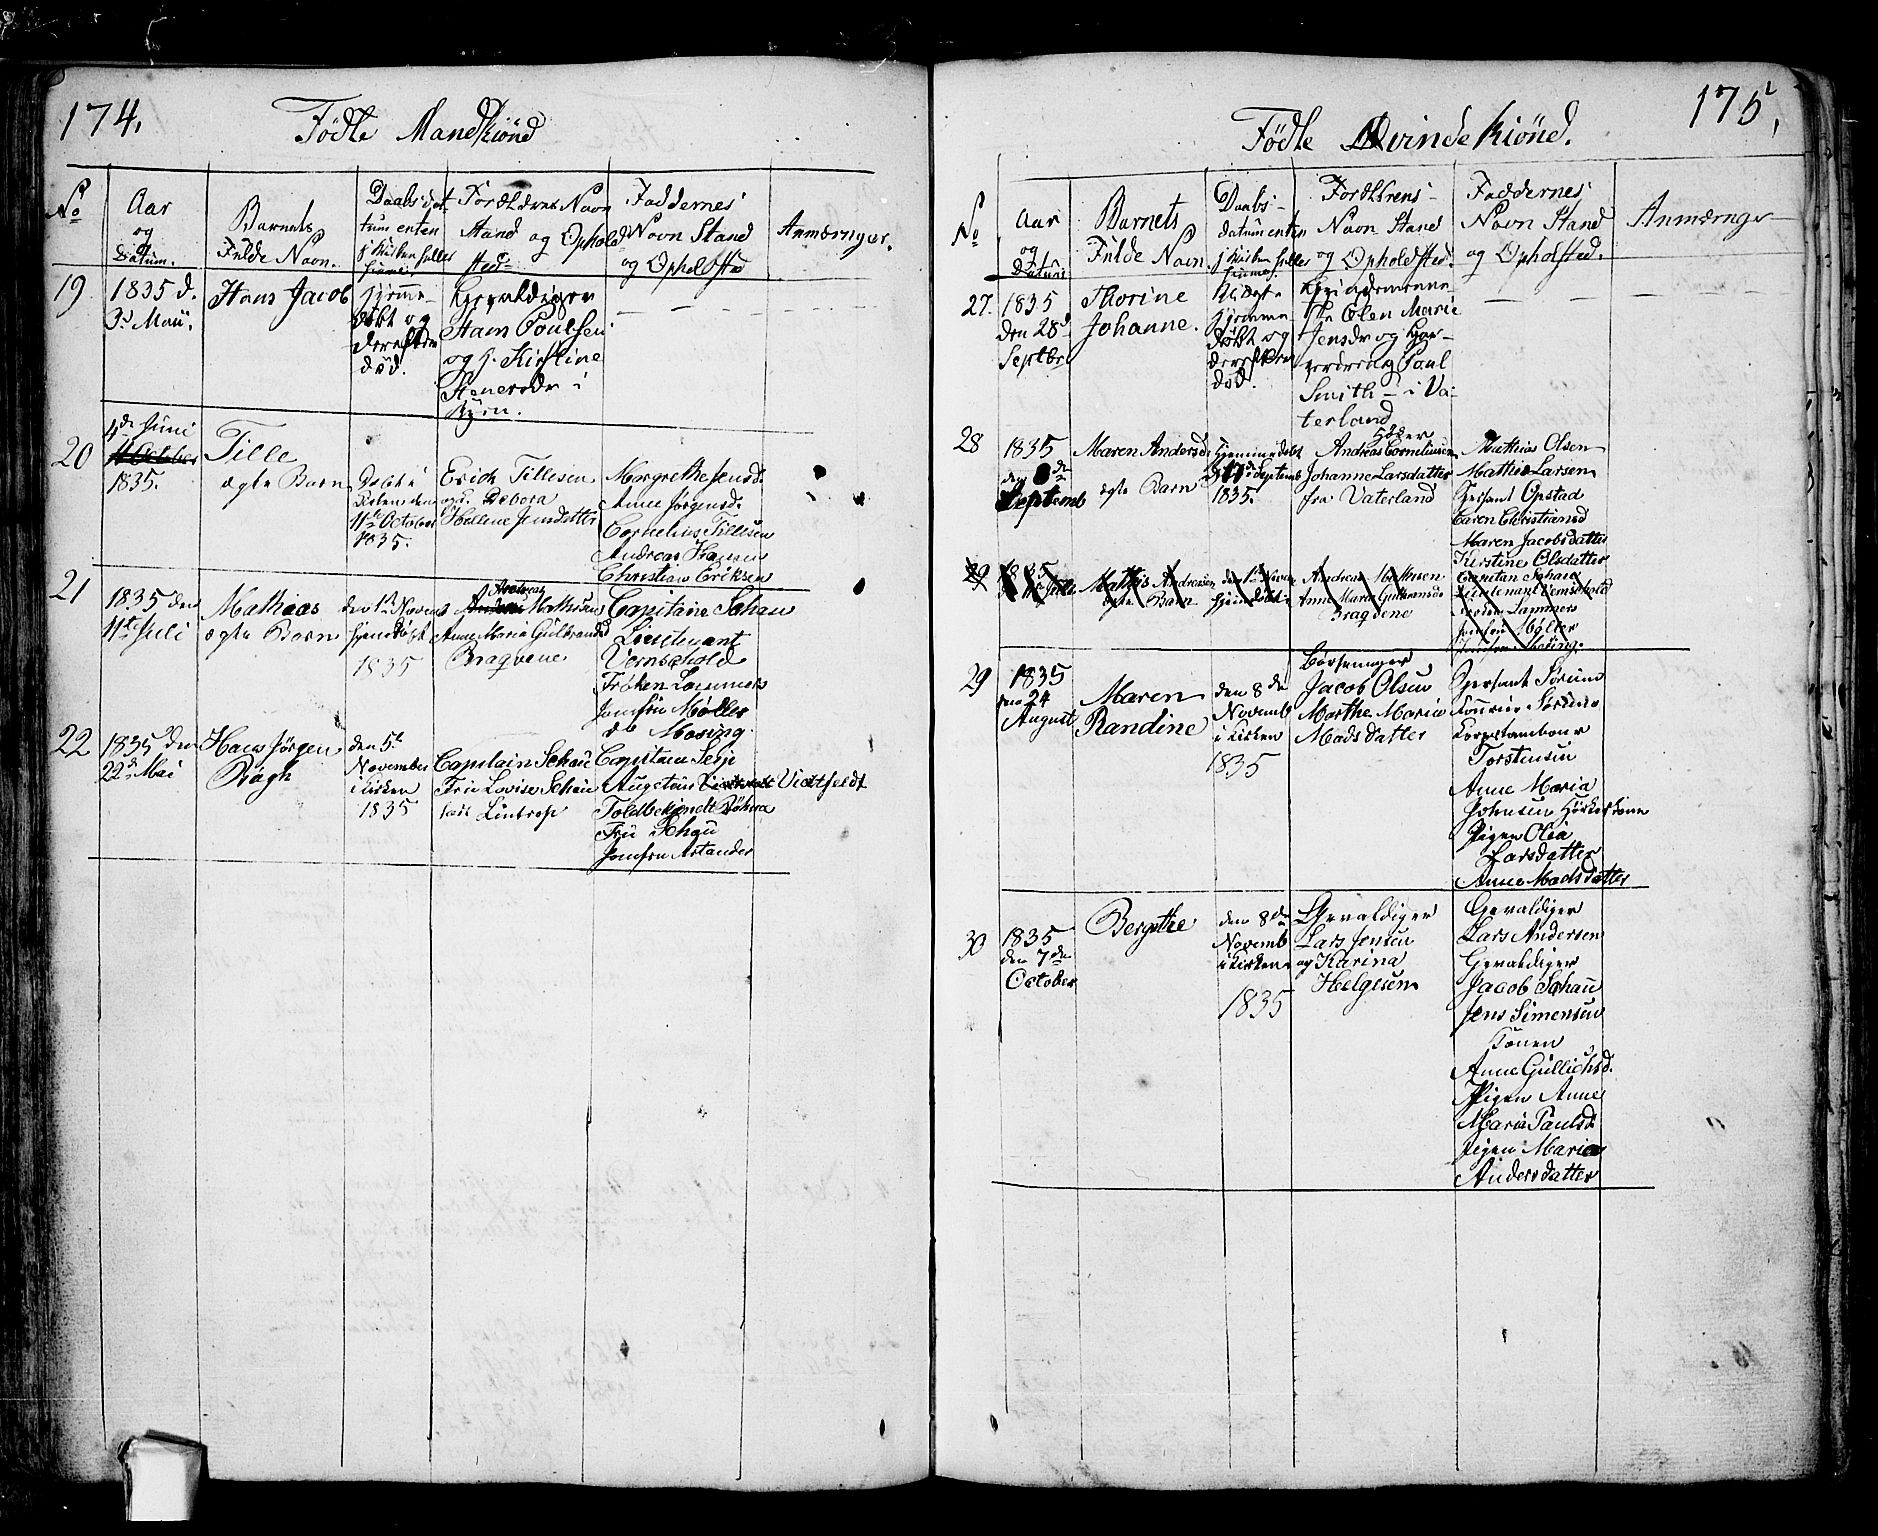 174.
Födte Mandkiönd
No
Aar
og
Datum.
Barnets
Fulde Navn.
Daabsdat
tum enten
j Kirken heller
hieme
Forældrenes Navn
Stand og Ophold
sted
Faddernes
Navn Stand
og Opholdsted
Anmærnger.
19
1835 d.
3d Maii.
Hans Jacob
hjemme
döbt og
derefter
död.
Gevaldiger
Hans Poulsen
og h. Kirstine
Stenersdr i
Byen.
20
4de Juni
11 October
1835.
Tille
ægte Barn
Döbt i
Kirken den
11te October
1835.
Erich Tillesen
og Debora
Hellene Jensdatter
Margrethe Jensd.
Anne Jörgensd.
Cornelius Tillesen
Andreas Hansen
Christian Eriksen
21
1835 den
11te Juli
Mathias
ægte Barn
den 1ste Novem
hjemdöbt
1835
Andreas
Mathisen
Anne Maria Gulbrandsd
Bragnene
Capitaine Schau
Lieutenant
Vernschold
Fröken Lammers
Jomfru Möller
do Mosing.
22
1835 den
22d Mai
Hans Jörgen
Bögh
den 5te
November
i Kirken
1835
Capitain Schau
Frue Lovise Schau
föd Lintrop
Capitain Seje
Augstus Vietfeldt
Toldbetjendt Böhm
Frü Schau
Jomfru Astander
175,
Födte Qvindekiönd.
No
Aar
og
Datum
Barnets
Fulde Navn
Daabs-
datum enten
j Kirken heller
hiemme
Forældrens
Navn Stand
og Opholdsted.
Faddernes
Navn Stand
og Opholdsted.
Anmærnger
27.
1835
den 28d
Septbr
Thorine
Johanne.
hjemme
döbt og
derefter
död.
Olen Marie
Jensdr og
Poul
Smith i Va-
terland
28
1835
den
Septemb
Maren Andersd.
ægte Barn
hjemmedöbt
Septemb
1835.
Andreas Cornelinsen
Johanne Larsdatter
fra Vaterland
Mathias Olsen
Mathis Larsen
Sersant Opstad
Caren Christiansd
Maren Jacobsdatter
Kirstine Olsdatter
29
1835
11te Julii
Mathis Andreasen
ægte Barn
den 1ste Novem
hjemdöbt
Andreas Mathisen
Anne Maria Gulbransdr
Bragnene
Capitan Schau
Lieutenant Vernschold
Fröken Lammers
Jomfru Möller
Jomfru Mosing.
29
1835
den 24
August
Maren
Randine
den 8de
Novemb
i Kirken
1835
Börsemager
Jacob Olsen
Marthe Maria
Madsdatter
Sersant Sörum
Torstensen
Anne Maria
Johnsen Hörkerkone
Pigen Olea
Larsdatter
Anne Madsdatter
30
1835
den 7de
October
Bergithe
den 8de
Novemb
i Kirken
1835
Gevaldiger
Lars Jensen
og Karina
Helgesen
Gevaldiger
Lars Andersen
Gevaldiger
Jacob Schau
Jens Simensen
Konen
Anne Gullichsd.
Pigen Anne
Maria Paulsd
Pigen Maria
Andersdatter